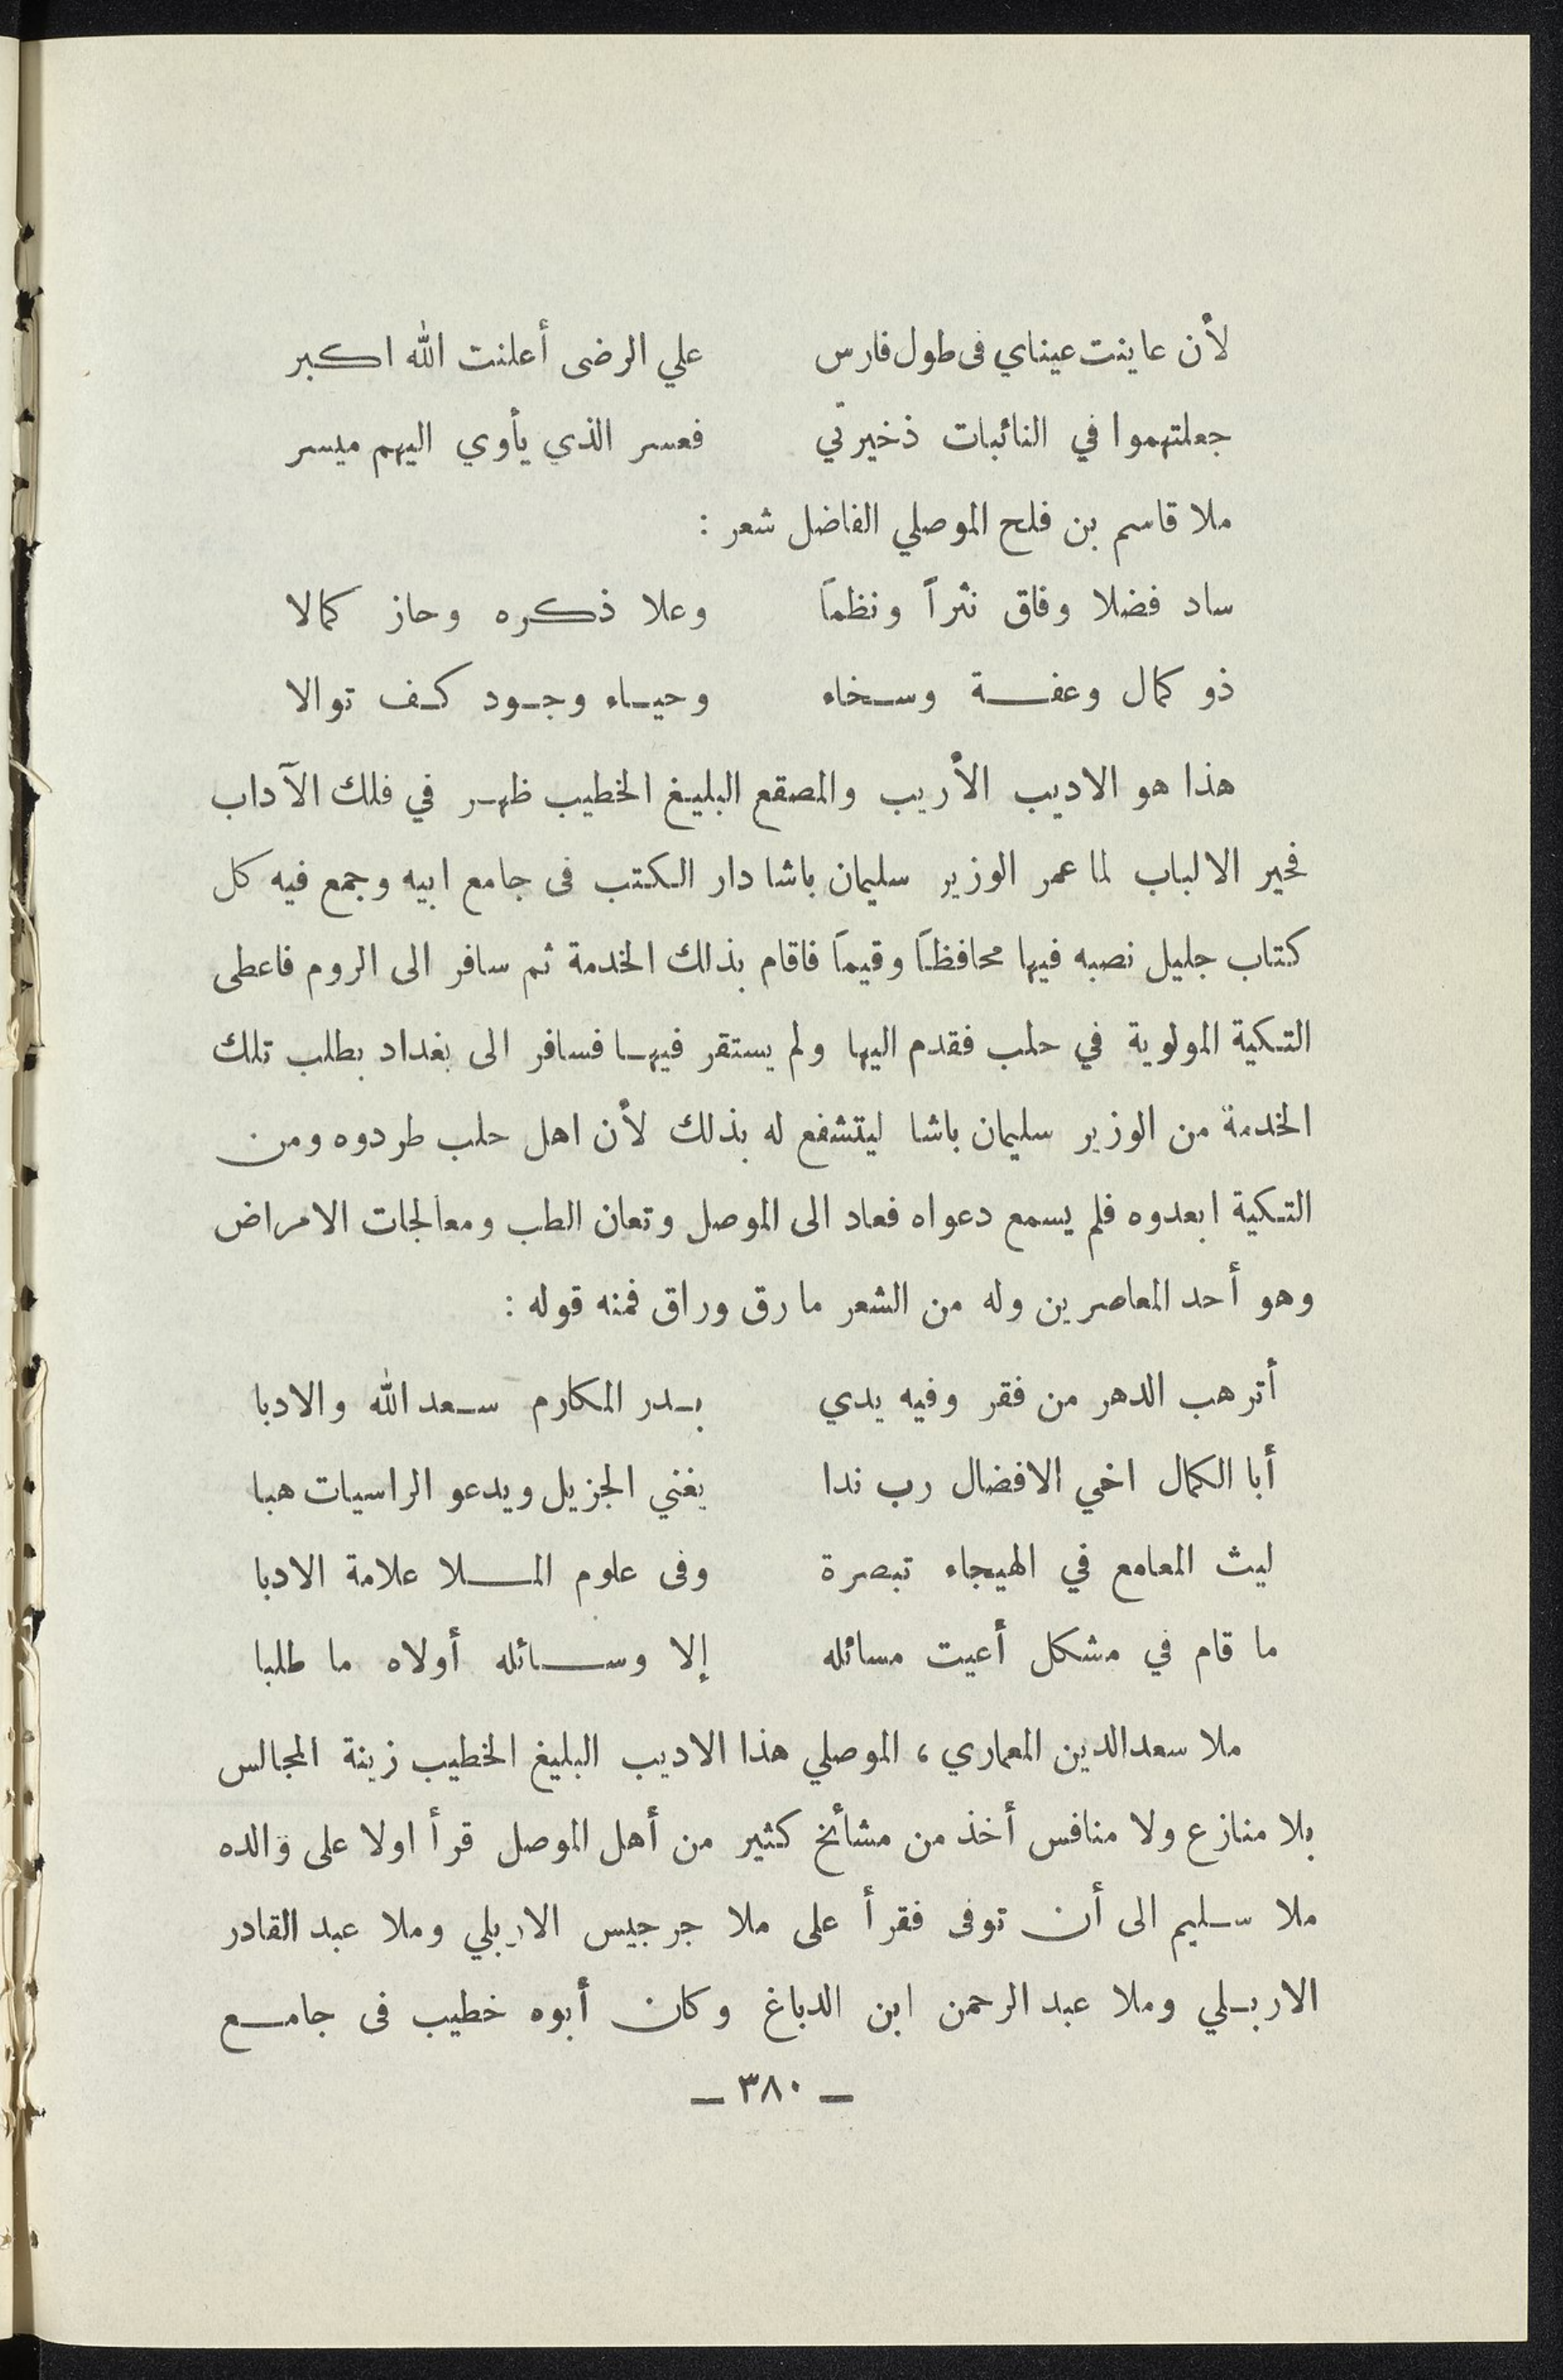 لأن عاينت عيناي فى طول فارس علي الرضى أعلنت الله اكبر
جعلتهموا في النائبات ذخيرتي فعسر الذي يأوي اليهم ميسر
ملا قاسم بن فلح الموصلي الفاضل شعر :
ساد فضلا وفاق نثراً ونظماً وعلا ذكره وحاز كمالا
ذو كمال وعفة وسخاء وحياء وجود كف توالا
هذا هو الاديب الأريب والمصقع البليغ الخطيب ظهر في فلك الآداب
فحير الالباب لما عمر الوزير سليمان باشا دار الكتب فى جامع ابيه وجمع فيه كل
كتاب جليل نصبه فيها محافظاً وقيماً فاقام بذلك الخدمة ثم سافر الى الروم فاعطى
التكية المولوية في حلب فقدم اليها ولم يستقر فيها فسافر الى بغداد بطلب تلك
الخدمة من الوزير سليمان باشا ليتشفع له بذلك لأن اهل حلب طردوه ومن
التكية ابعدوه فلم يسمع دعواه فعاد الى الموصل وتعان الطب ومعالجات الامراض
وهو أحد المعاصرين وله من الشعر ما رق وراق فمنه قوله :
أترهب الدهر من فقر وفيه يدي بدر المكارم سعد الله والادبا
أبا الكمال اخي الافضال رب ندا يغني الجزيل ويدعو الراسيات هبا
ليث المعامع في الهيجاء تبصرة وفى علوم الملا علامة الادبا
ما قام في مشكل أعيت مسائله إلا وسائله أولاه ما طلبا
ملا سعدالدين المعماري ، الموصلي هذا الاديب البليغ الخطيب زينة المجالس
بلا منازع ولا منافس أخذ من مشائخ كثير من أهل الموصل قرأ اولا على والده
ملا سليم الى أن توفى فقرأ على ملا جرجيس الاربلي وملا عبد القادر
الاربلي وملا عبد الرحمن ابن الدباغ وكان أبوه خطيب فى جامع
— ٣٨٠ —